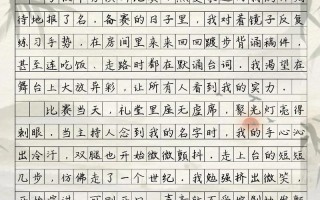 待地报了名，备赛的日子里，我对着镜子反复
练习手势，在房间里来来回回踱步背诵稿件，
甚至连吃饭、走路时都在默诵台词，我渴望在
舞台上大放异彩，让所有人看到我的实力。
比赛当天，礼堂里座无虚席，聚光灯亮得
刺眼，当主持人念到我的名字时，我的手心沁
出冷汗，双腿也开始微微颤抖，走上台的短短
几步，仿佛走了一个世纪，我勉强挤出微笑，